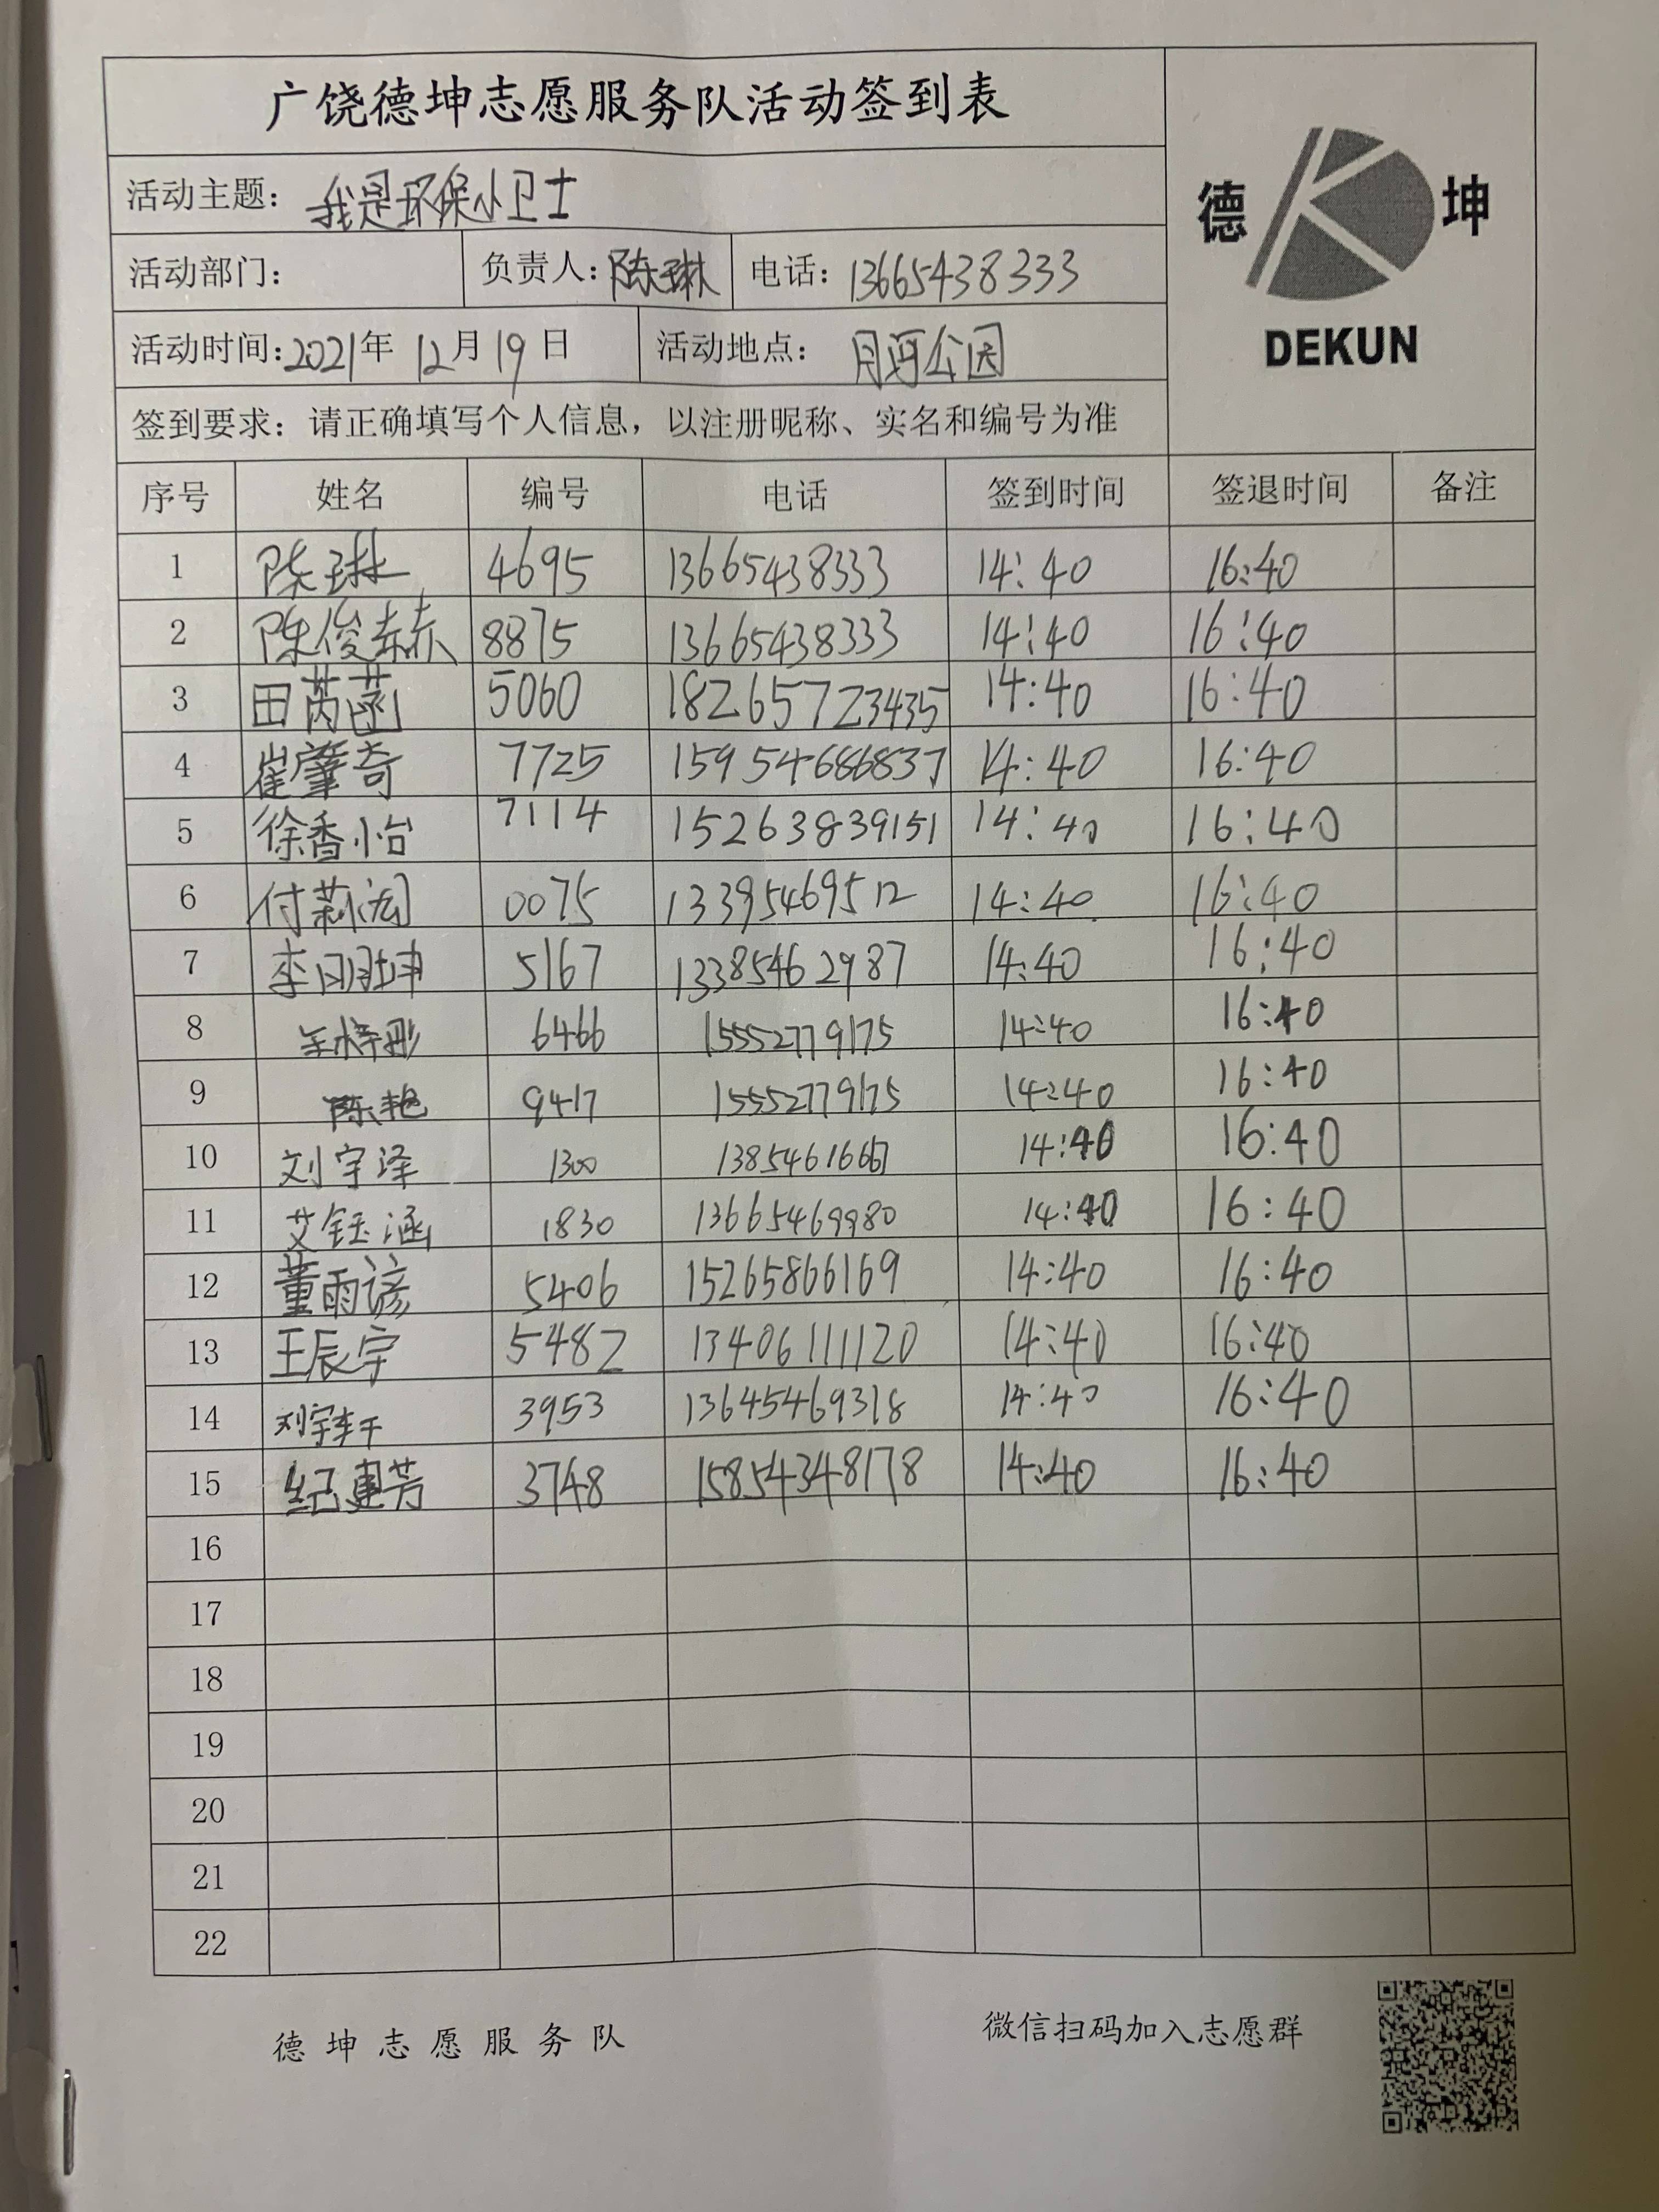 广饶德坤志愿服务队活动签到表
德 坤
DEKUN
活动主题: 我是环保小卫士
活动部门: 负责人: 陈琳 电话: 13665438333
活动时间: 2021年 12月19日 活动地点: 月河公园
签到要求: 请正确填写个人信息, 以注册昵称、实名和编号为准
序号 姓名 编号 电话 签到时间 签退时间 备注
1 陈琳 4695 13665438333 14:40 16:40
2 陈俊赫 8875 13665438333 14:40 16:40
3 田芮菡 5060 18265723435 14:40 16:40
4 崔肇奇 7725 15954686837 14:40 16:40
5 徐香怡 7114 15263839151 14:40 16:40
6 付莉 0075 13395469512 14:40 16:40
7 李 坤 5167 13385462987 14:40 16:40
8 梓彤 6466 15552779175 14:40 16:40
9 陈艳 9417 15552779175 14:40 16:40
10 刘宇泽 1300 14:40 16:40
11 艾钰涵 1830 13665469980 14:40 16:40
12 董雨谚 5406 15265866169 14:40 16:40
13 王辰宇 5482 13406111120 14:40 16:40
14 刘宇轩 3953 13645469318 14:40 16:40
15 纪建芳 3748 15854348178 14:40 16:40
16
17
18
19
20
21
22
德坤志愿服务队 微信扫码加入志愿群